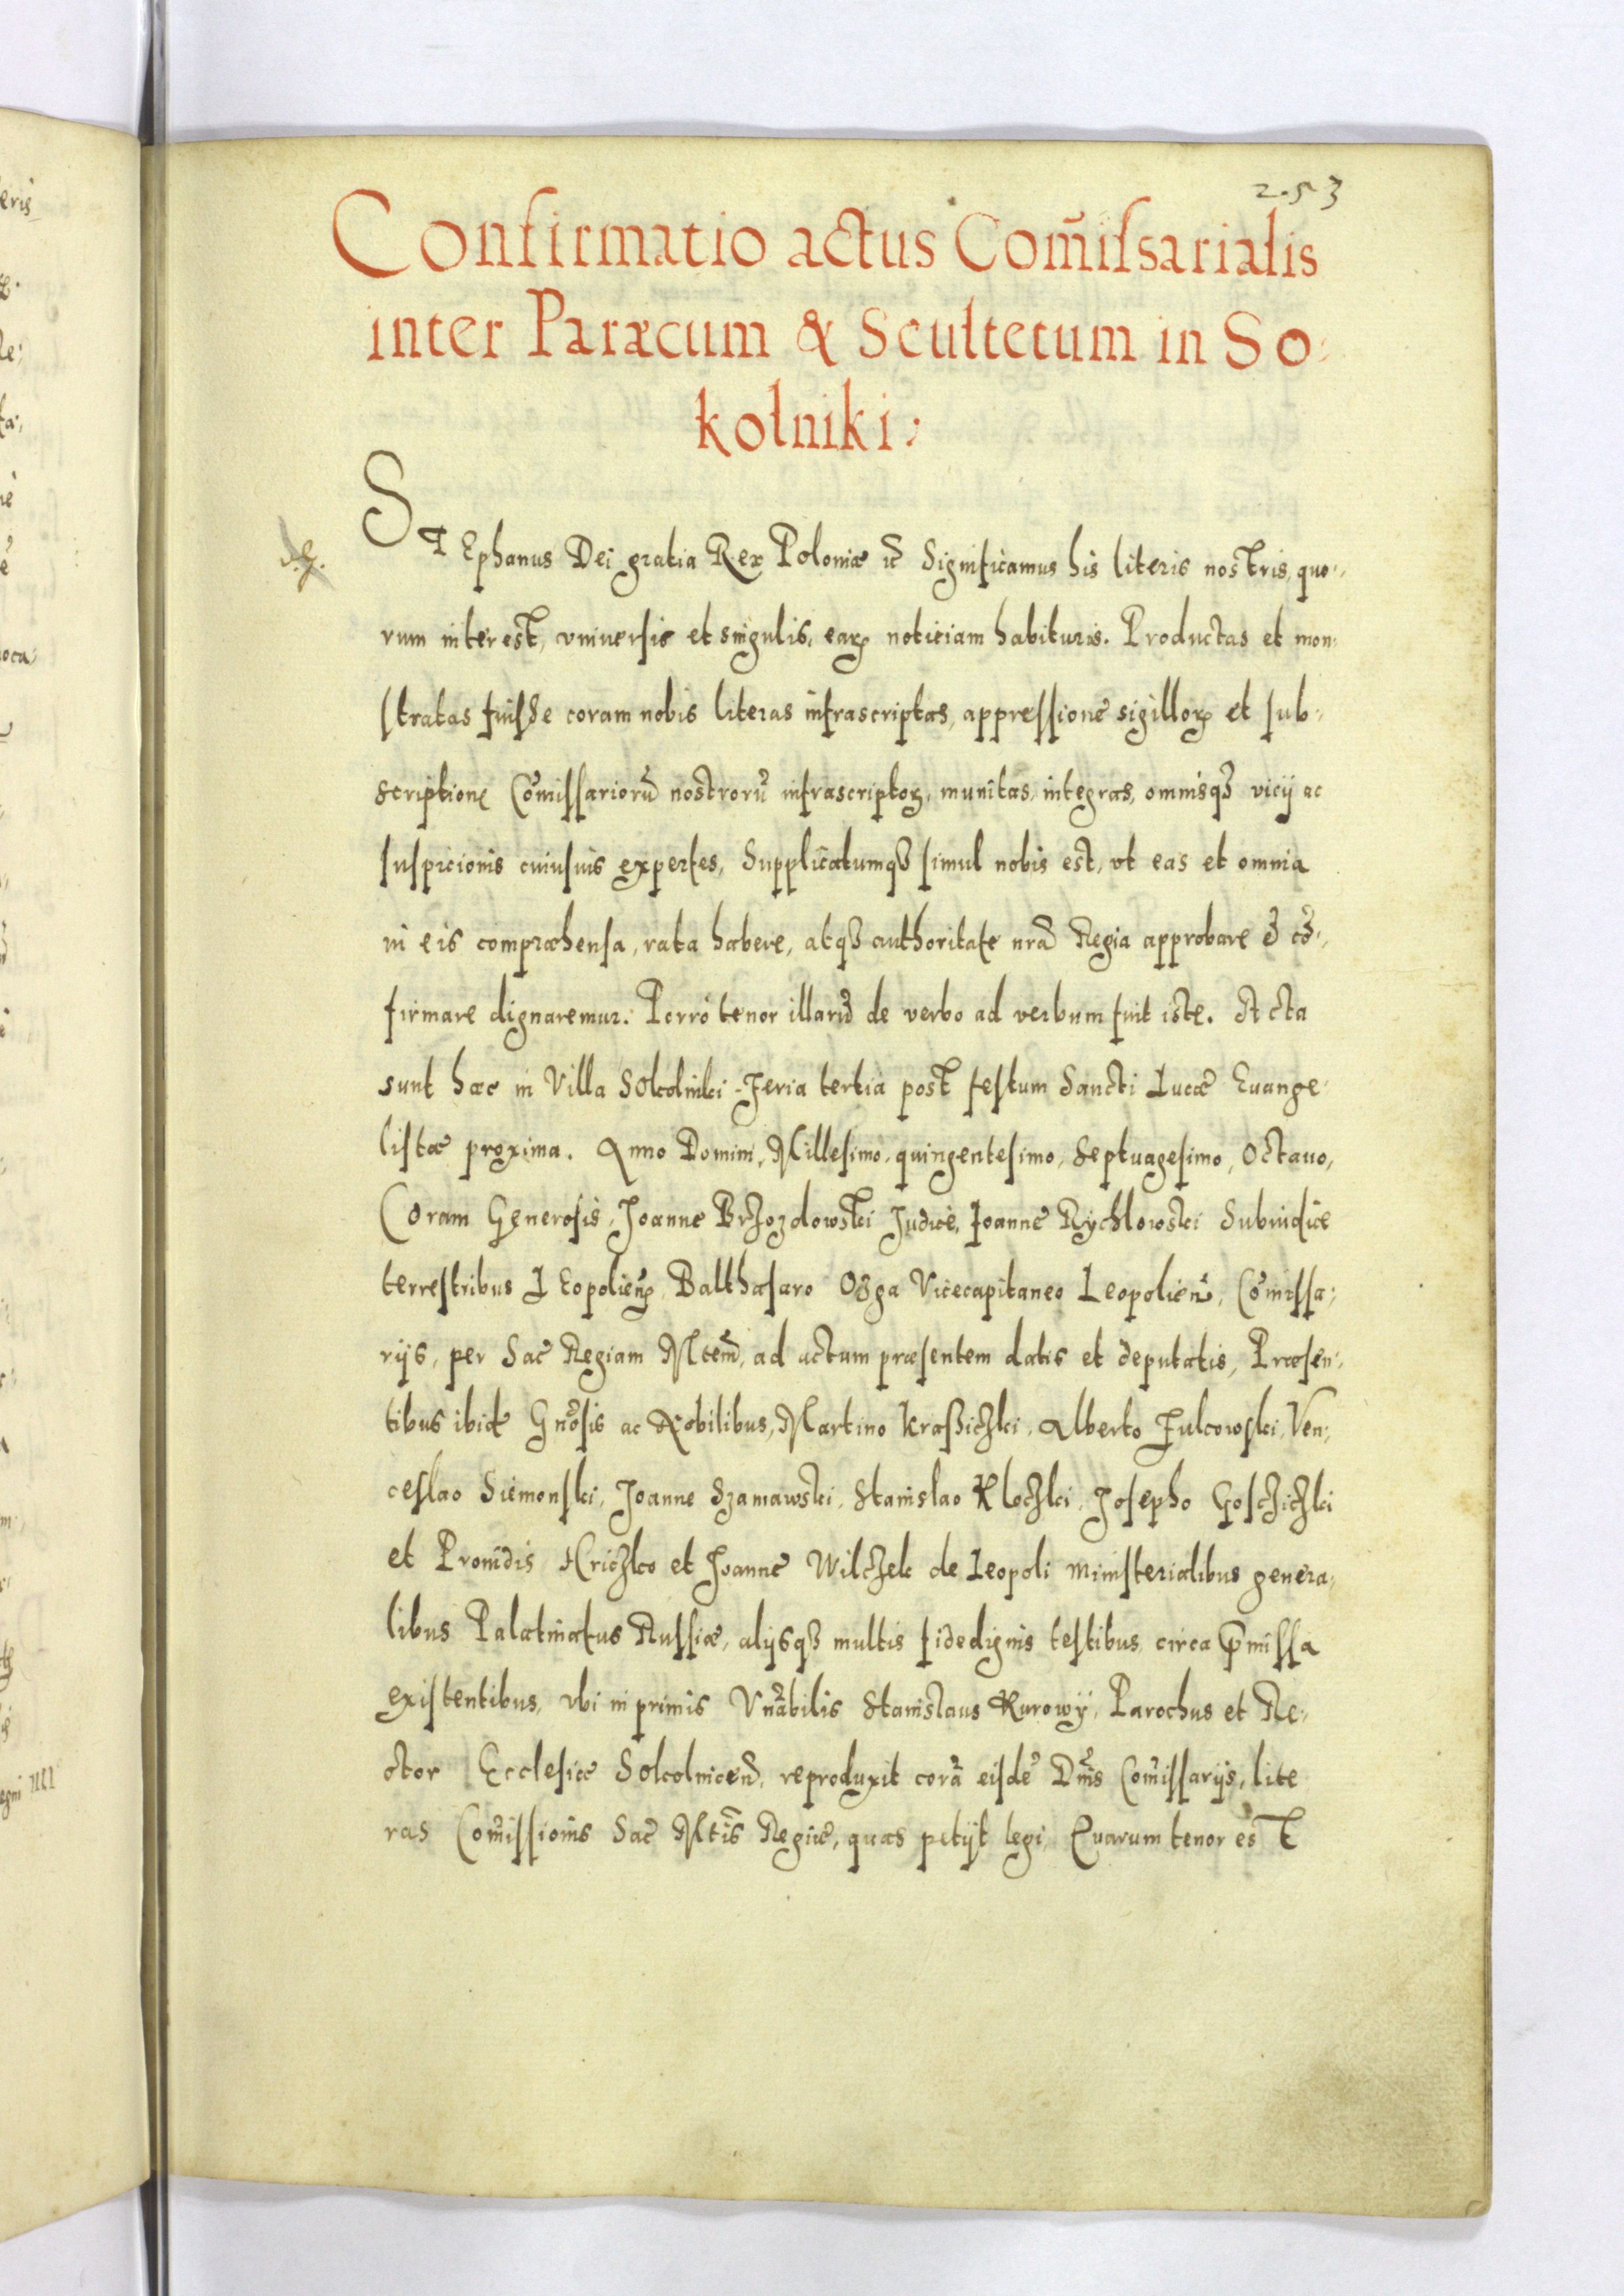 253
Confirmatio actus Com̃issarialis
inter Paræcum & Scultetum in So:
kolniki:
STEphanus Dei gratia Rex Poloniæ &c̃ Significamus his literis nostris, quo:
rum interest, vniuersis et singulis, earꝝ noticiam habituris. Productas et mon:
stratas fuisse coram nobis literas infrascriptas, appressione sigillorꝝ et sub:
scriptione Com̃issariorũ nostrorũ infrascriptorꝝ, munitas, integras, omnisqꝫ vicij ac
suspicionis cuiusuis expertes, Supplicatumqꝫ simul nobis est, vt eas et omnia
in eis compræhensa, rata habere, atqꝫ authoritate nrã Regia approbare & cõ:
firmare dignaremur. Porrò tenor illarũ de verbo ad verbum fuit iste. Acta
sunt hæc in Villa SOkolniki Feria tertia post festum Sancti Lucæ Euange:
listæ proxima. Anno Domini, Millesimo, quingentesimo, Septuagesimo, Octauo,
Coram Generosis, Joanne Brzozdowski Judice, Joanne Rychlowski Subiudice
terrestribus LEopolieñ, Balthasaro Ozga Vicecapitaneo Leopolieñ, Com̃issa:
rijs, per Sac̃ Regiam Mtem̃, ad actum præsentem datis et deputatis, Præsen:
tibus ibidẽ Gñosis ac Nobilibus, Martino Kraßiczki, Alberto Fulcowski, Ven:
ceslao Siemonski, Joanne Szamawski, Stanislao Kloczki, Josepho Gosczickzki
et Prouidis Hriczko et Joanne Wilczek de Leopoli ministerialibus genera:
libus Palatinatus Russiæ, alijsqꝫ multis fidedignis testibus circa p̃missa
existentibus, vbi in primis Vnãbilis Stanislaus Kurowy, Parochus et Re:
ctor Ecclesiæ Sokolniceñ, reproduxit corã eisdẽ Dñis Com̃issarijs, lite
ras Com̃issionis Sac̃ Mtis̃ Regiæ, quas petijt legi, Quarum tenor est